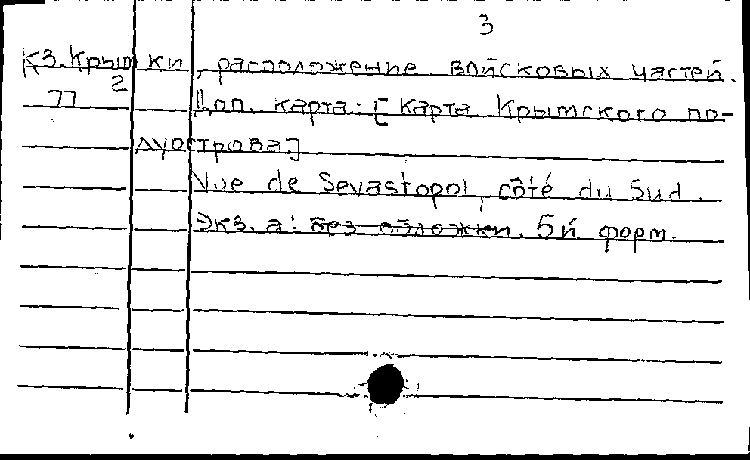 3
К3.Крым ки, расположение войсковых частей.
2
77 Доп. карта: [Карта Крымского по-
луострова]
Vue de Sevastopol, côté du Sud.
Экз. а: без обложки. 5й форм.